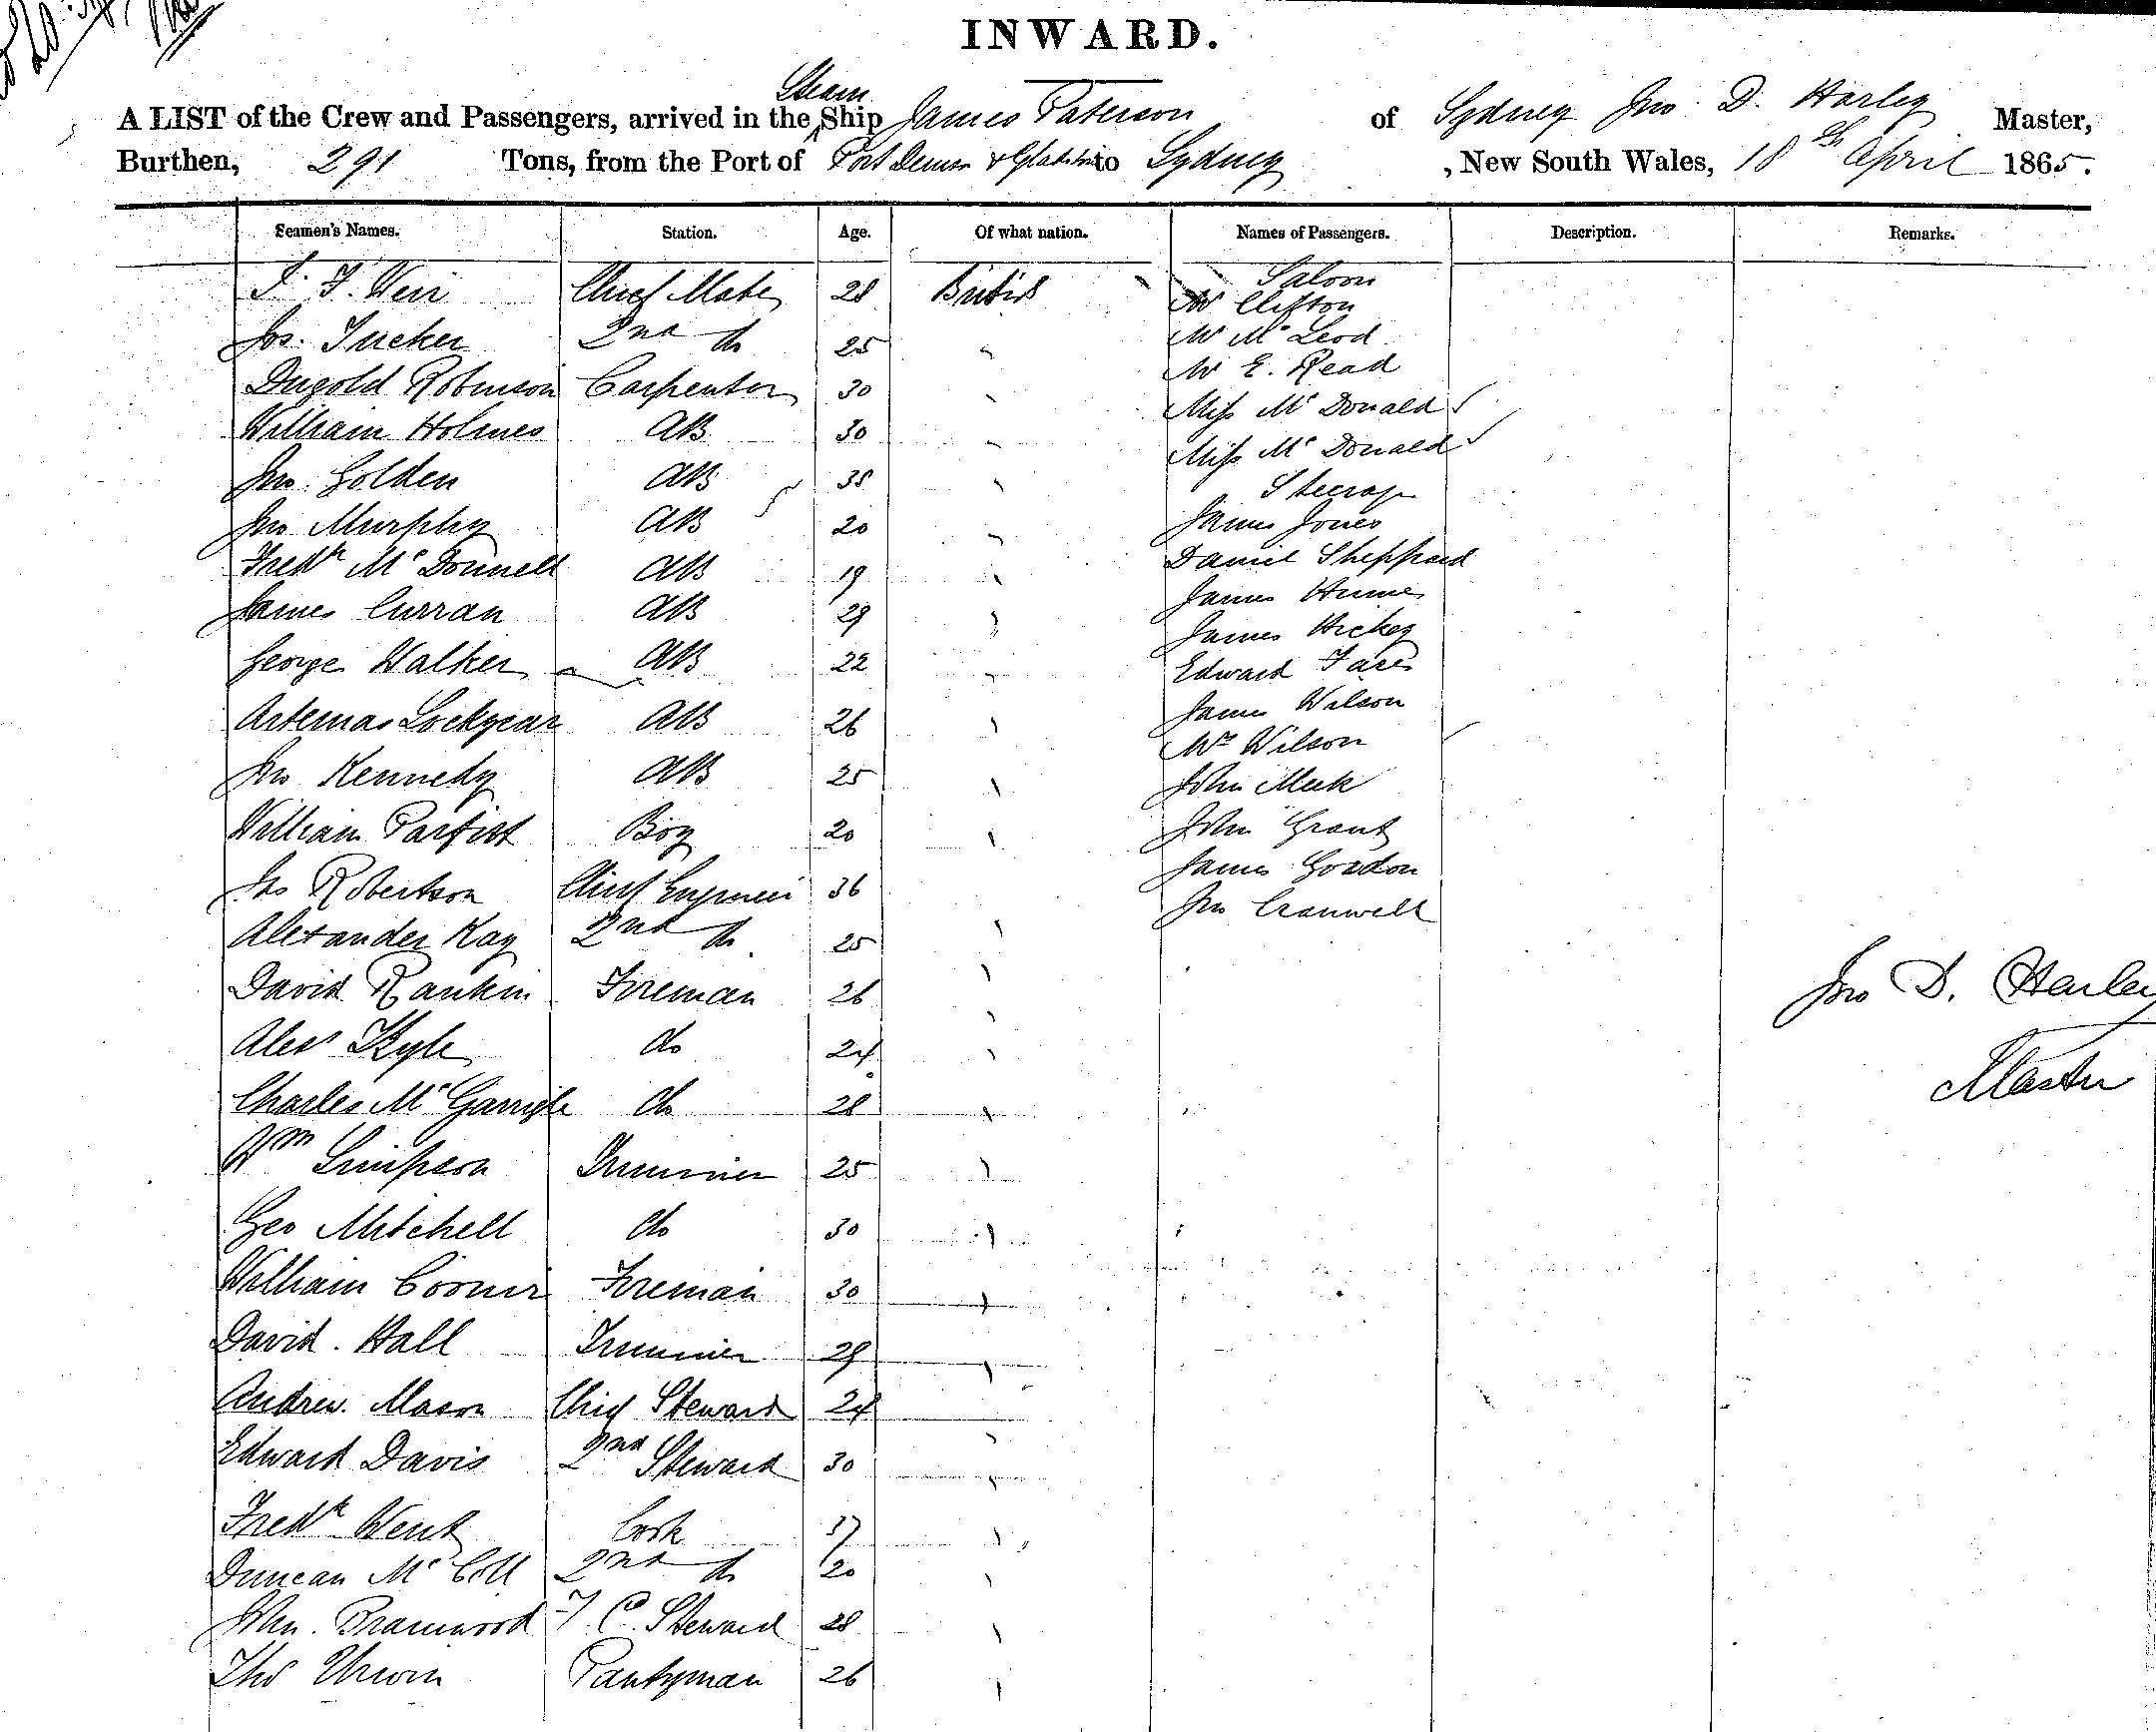 INWARD.
Steam
A LIST of the Crew and Passengers, arrived in the Ship James Paterson of Sydney Jno. D. Harley Master,
Burthen, 291 Tons, from the Port of Port Denison & Gladstone to Sydney, New South Wales, 18th April 1865.
Seamen's Names. Station. Age. Of what nation. Names of Passengers. Description. Remarks.
Saloon
Weir Chief Mate 28 British Mr Clifton
Jos. Tucker 2nd do 25 " Mr McLeod
Dugold Robinson Carpenter 30 " Mr E. Read
William Holmes AB 30 " Miss McDonald
Jno. Golden AB 35 " Miss McDonald
Steerage
Jno Murphy AB 20 " James Jones
Fredk McDonnell AB 19 " Daniel Sheppard
James Curran AB 29 " James Hume
George Walker AB 22 " James Hickey
Edward
Artemas Lockyear AB 26 " James Wilson
Mrs Wilson
Jno Kennedy AB 25 " John Meek
William Parfitt Boy 20 " John Grant
Jas Robertson Chief Engineer 36 James Gordon
Jno Cranwell
Alexander Kay 2nd do. 25 "
David Rankin Fireman 26 "
Jno D. Harley
Alexr Kyle do 24 "
Master
Charles McGarrigle do 28 "
Wm Simpson Trimmer 25 "
Geo Mitchell do 30 "
William Fireman 30 "
David Hall Trimmer 29 "
Andrew Mason Chief Steward 24
Edward Davis 2nd Steward 30 "
Fredk Went Cook 37 "
Duncan McColl 2nd do 20 "
John Bramwood F. C. Steward 28 "
Thos Urwin Pantryman 26 "